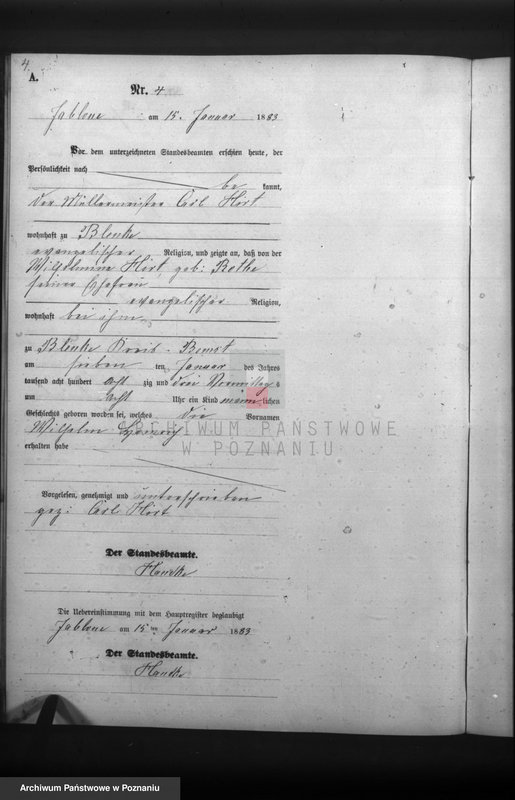 4.
A.
Nr. 4
Jablone am 15. Januar 1883
Vor dem unterzeichneten Standesbeamten erschien heute, der
Persönlichkeit nach
be kannt,
der Müllermeister Carl Hirt
wohnhaft zu Blenke
evangelischer Religion, und zeigte an, daß von der
Wilhelmine Hirt geb: Rothe
seiner Ehefrau
evangelischer Religion,
wohnhaft bei ihm
zu Blenke Kreis - Bomst
am sieben ten Januar des Jahres
tausend acht hundert acht zig und drei Vormittags
um acht Uhr ein Kind männ lichen
Geschlechts geboren worden sei, welches die Vornamen
Wilhelm
erhalten habe
ARCHIWUM PAŃSTWOWE
W POZNANIU
Vorgelesen, genehmigt und unterschrieben
gez: Carl Hirt
Der Standesbeamte.
Die Uebereinstimmung mit dem Hauptregister beglaubigt
Jablone am 15 ten Januar 1883
Der Standesbeamte.
Archiwum Państwowe w Poznaniu